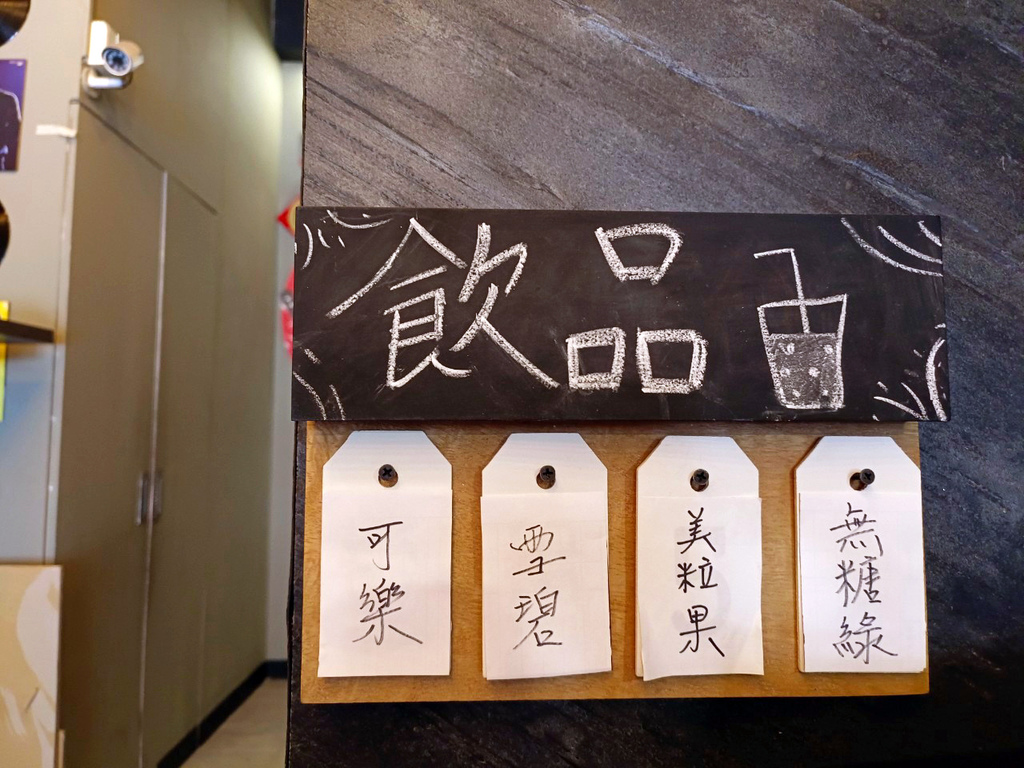 飲品
可樂
雪碧
美粒果
無糖綠